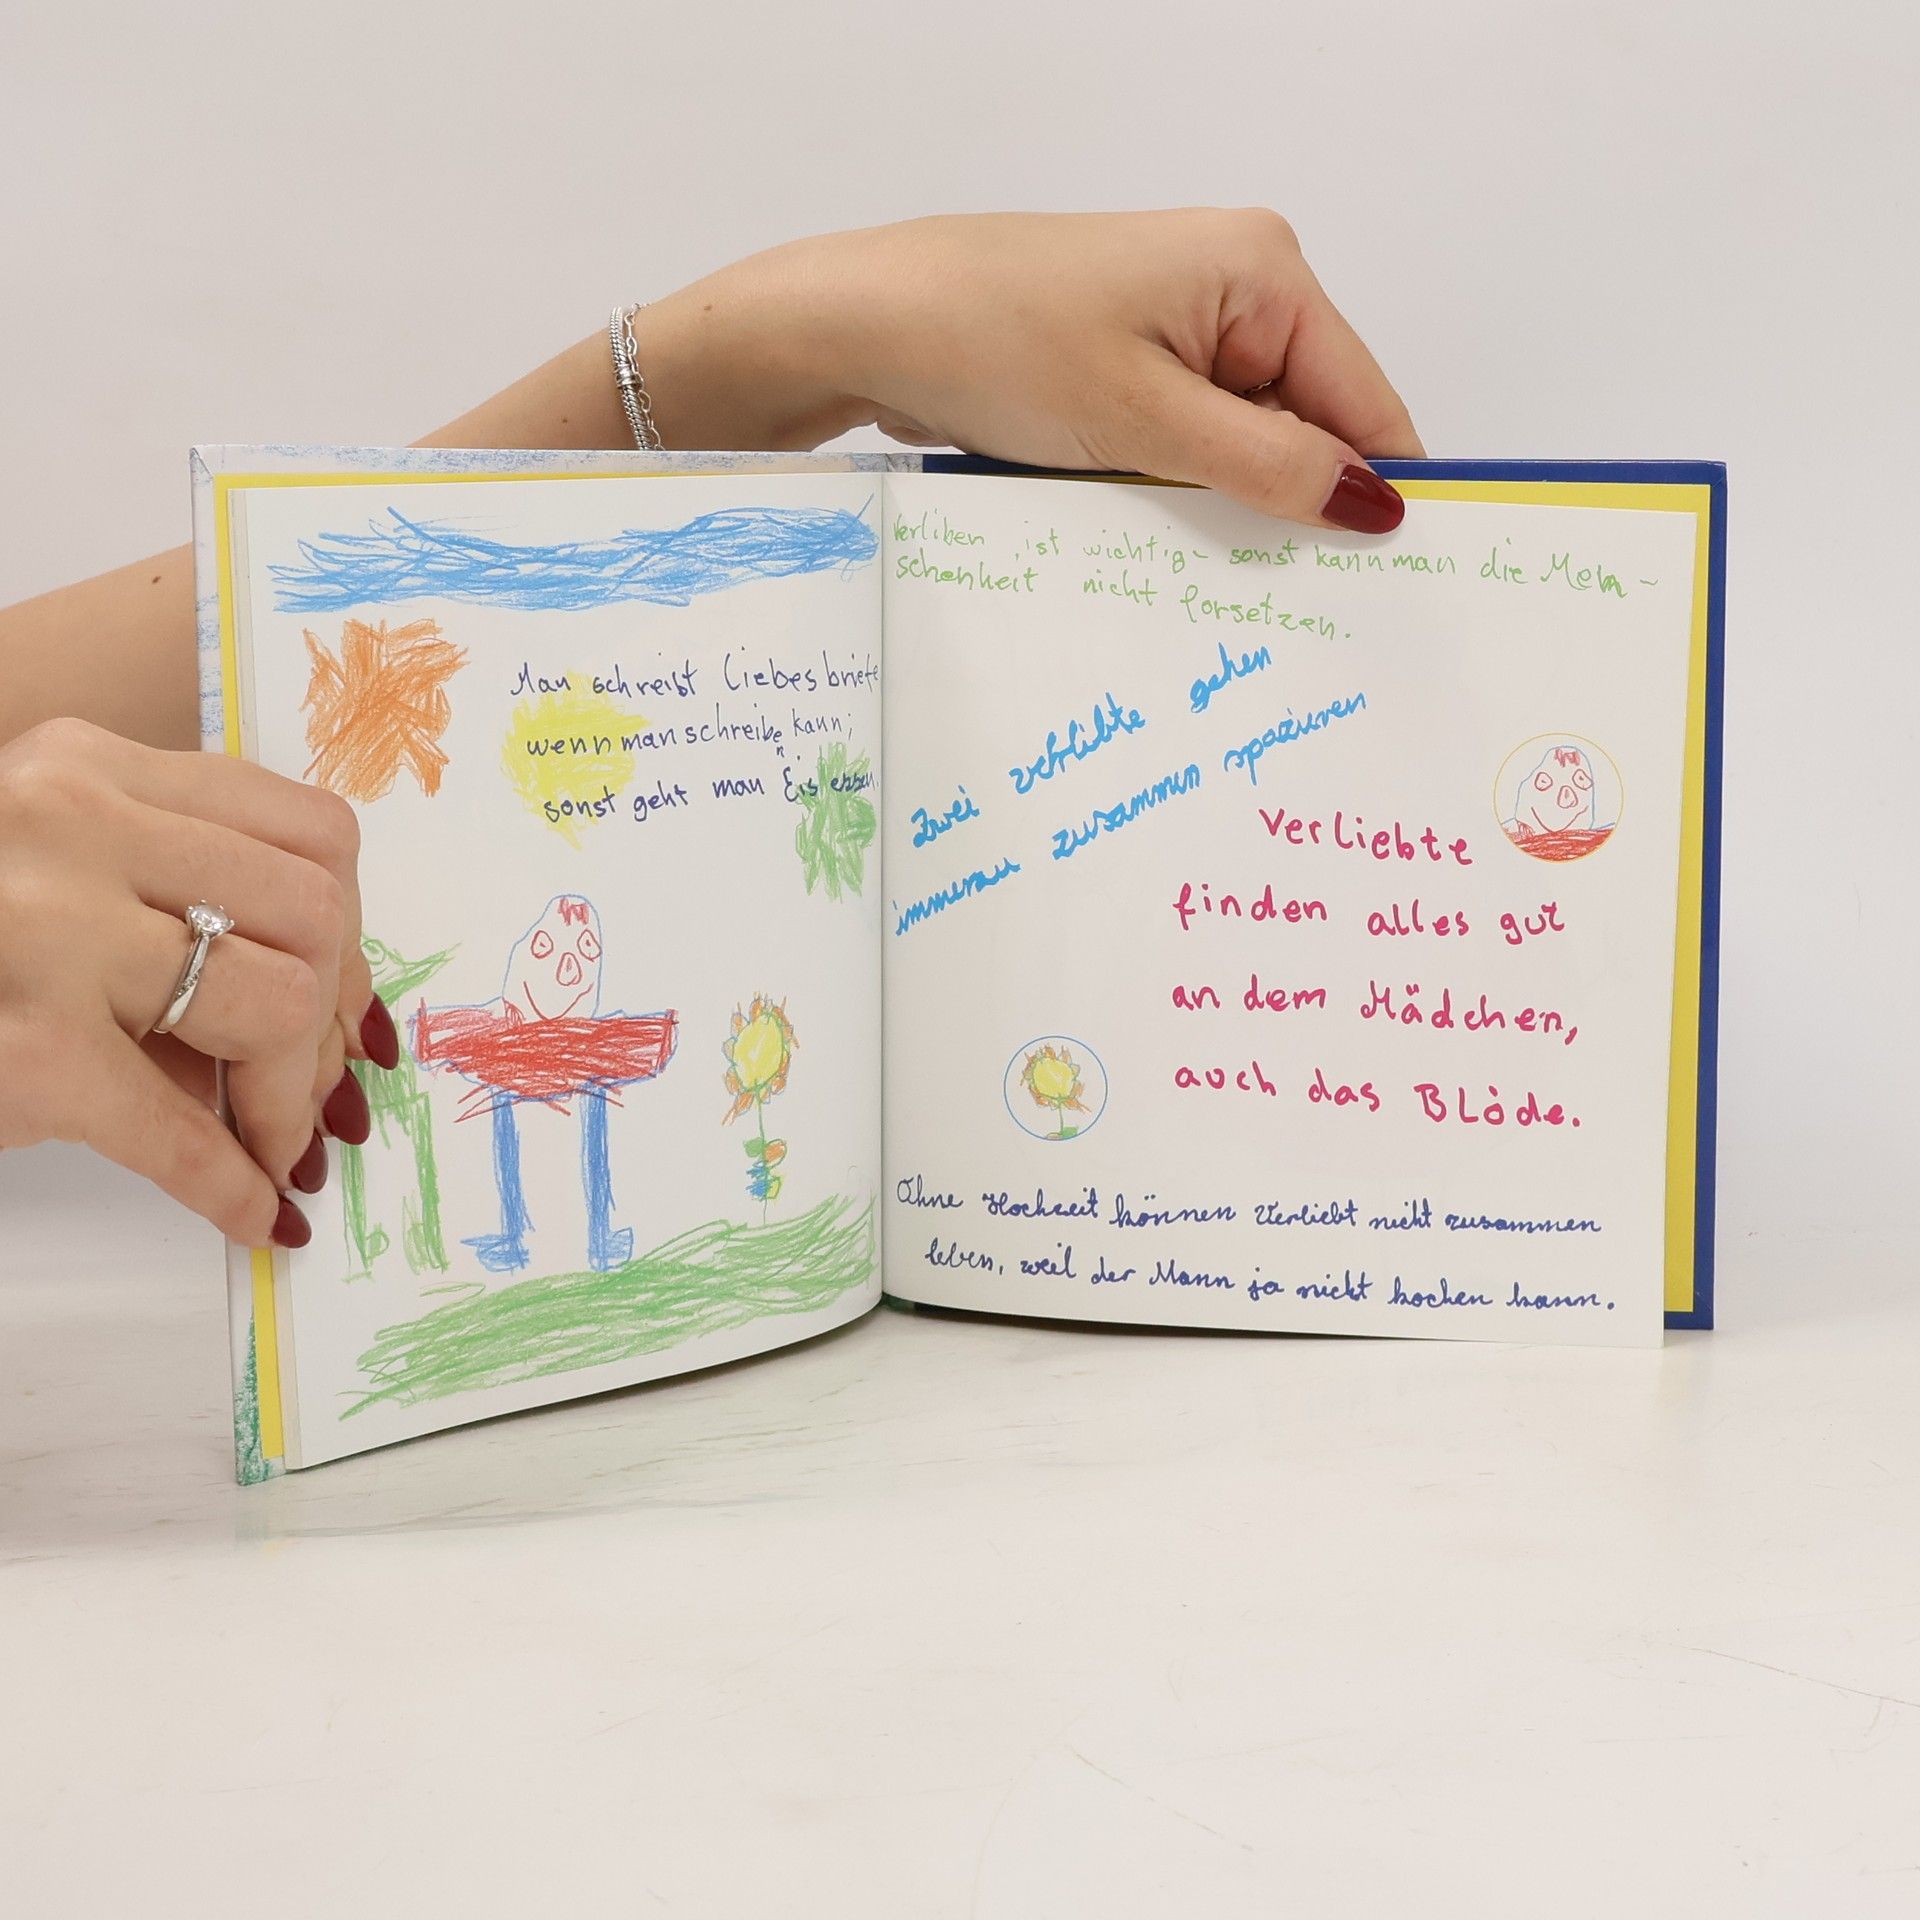 Man schreibt Liebesbriefe
wenn man schreiben kann;
sonst geht man Eis essen.
Verliben ist wichtig sonst kann man die Men-
schenheit nicht forsetzen.
Zwei verliebte gehen
immerzu zusammen spazieren
Verliebte
finden alles gut
an dem Mädchen,
auch das BLöde.
Ohne Hochzeit können Verliebt nicht zusammen
leben, weil der Mann ja nicht kochen kann.